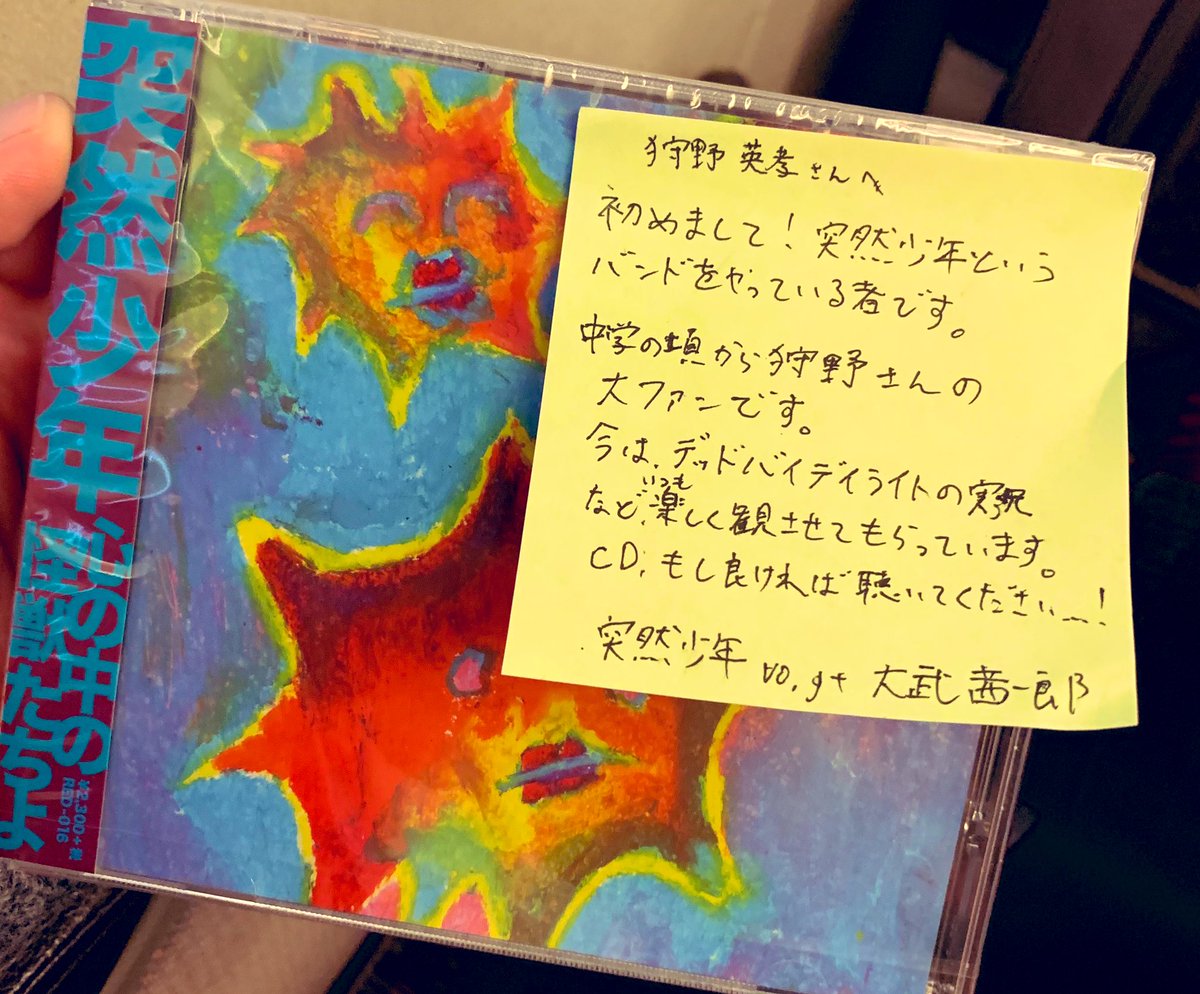 突然少年
心の中の
怪獣たちよ
¥2,300+税
RSD-016
狩野英孝さんへ
初めまして！突然少年という
バンドをやっている者です。
中学の頃から狩野さんの
大ファンです。
今は、デッドバイデイライトの実況
など、いつも楽しく観させてもらっています。
CD、もし良ければ聴いてください…！
突然少年 vo,gt 大武茜一郎